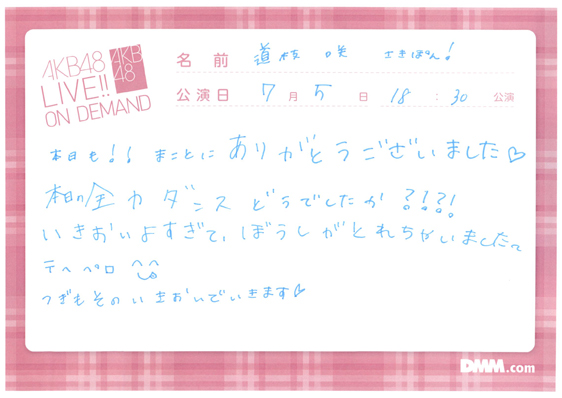 AKB48
LIVE!!
ON DEMAND
AKB
48
名前 道枝 咲 さきぽん!
公演日 7月5日 18:30 公演
本日も!! まことに ありがとうございました♡
本日の全力ダンス どうでしたか ?!?!
いきおいよすぎて、ぼうしがとれちゃいましたっ
テヘペロ
つぎもそのいきおいでいきます♡
DMM.com